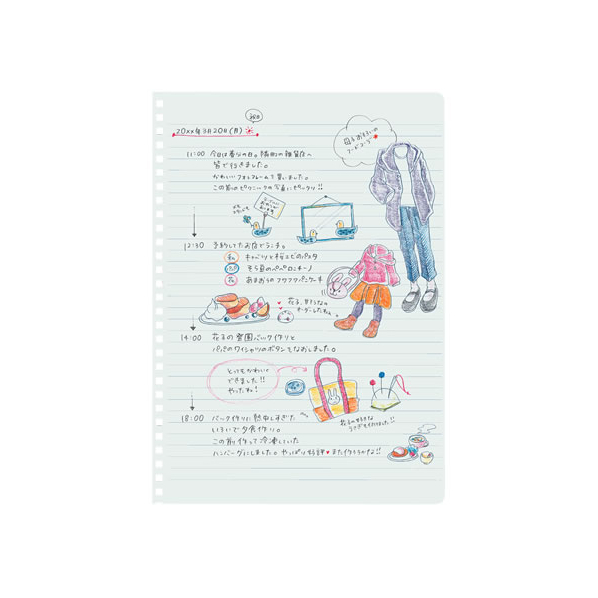 祝日
20××年3月20日(月)
母子おそろいの
コーデ
11:00 今日は春分の日。隣町の雑貨店へ
皆で行きました。
かわいいフォトフレームを買いました。
この前のピクニックの写真にピッタリ!!
12:30 予約してたお店でランチ。
私 キャベツと桜エビのパスタ
そら豆のペペロンチーノ
花 あまおうのフワフワパンケーキ
花子、
14:00 花子の幼稚園バック作りと
パパのワイシャツのボタンをなおしました。
とてもかわいく
できました!!
やったね!
花子の好きな
うさぎも付けました!!
18:00 バック作りに熱中しすぎた
いそいで夕食作り。
この前作って冷凍していた
ハンバーグにしました。やっぱり好評♥また作ろうかな!!